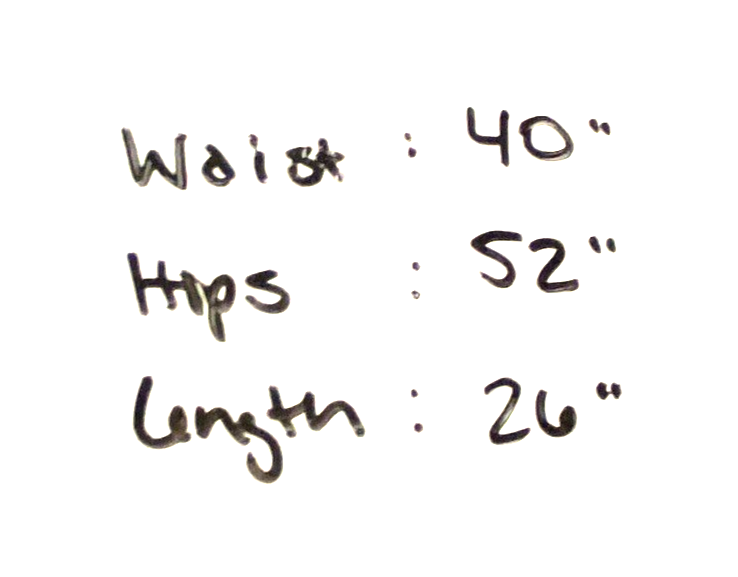 Waist : 40"
Hips : 52"
Length : 26"